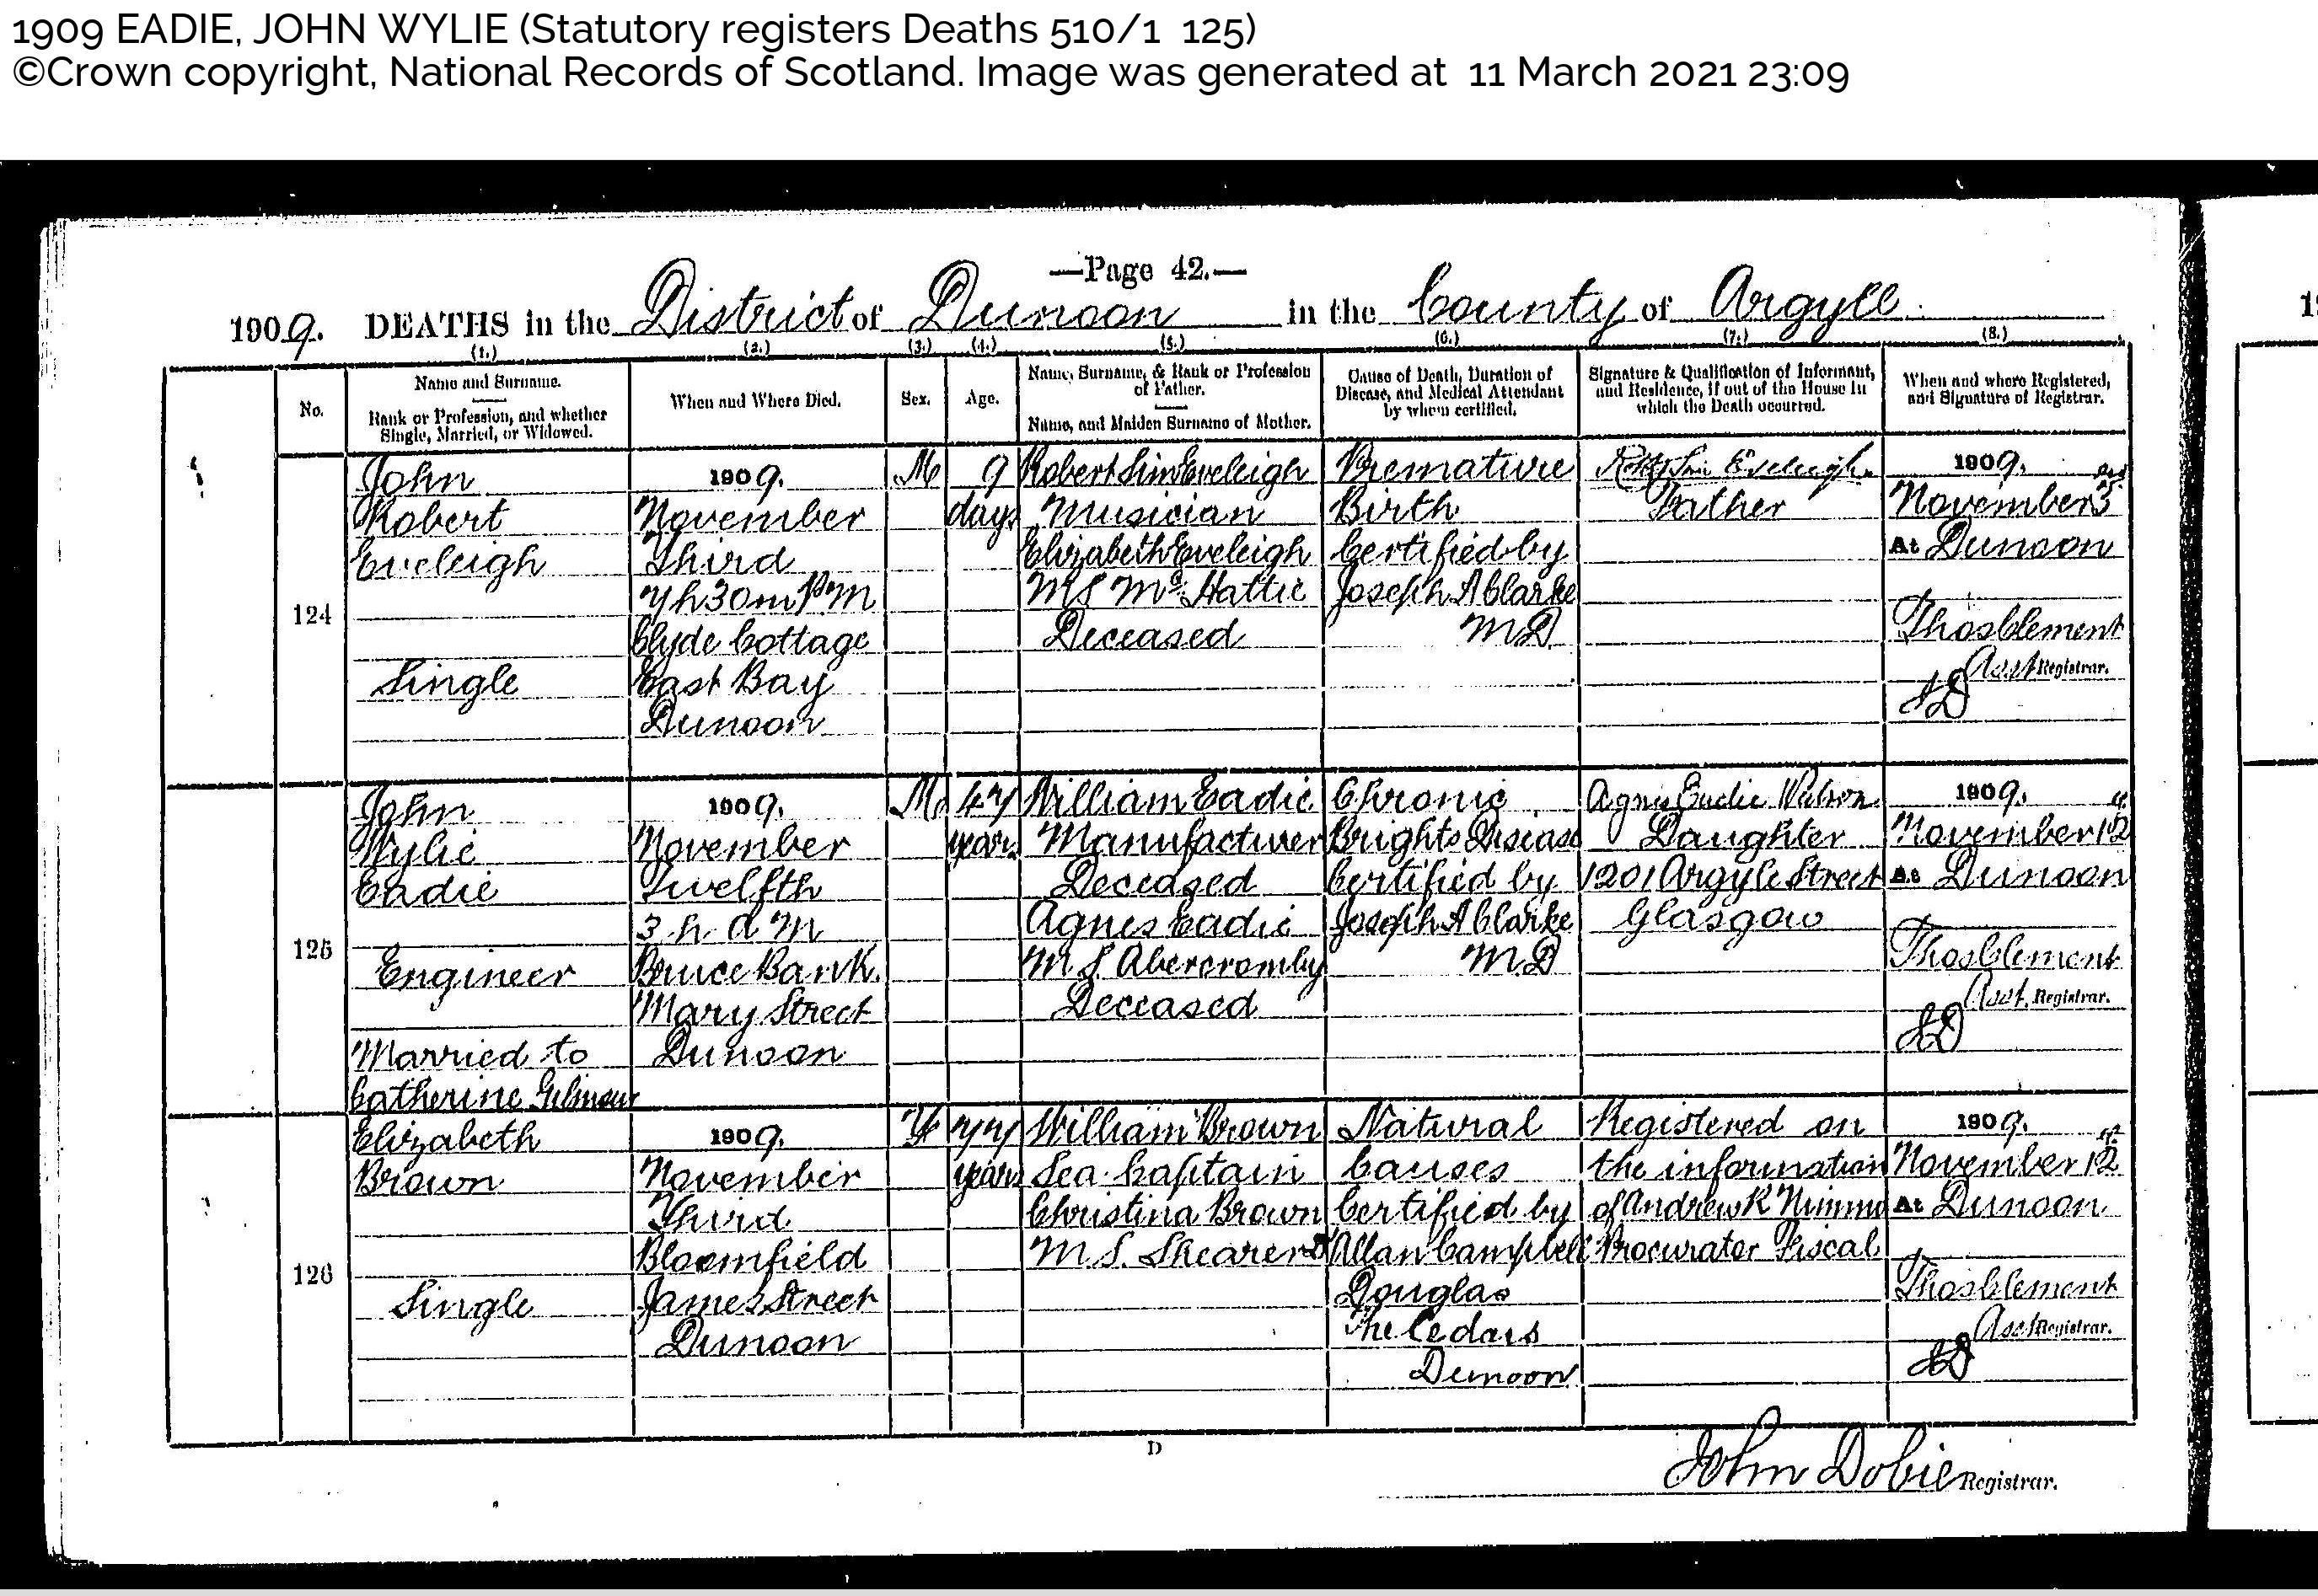 1909 EADIE, JOHN WYLIE (Statutory registers Deaths 510/1 125)
©Crown copyright, National Records of Scotland. Image was generated at 11 March 2021 23:09
—Page 42.—
1909. DEATHS in the District of Dunoon in the County of Argyll
(1.) (2.) (3.) (4.) (5.) (6.) (7.) (8.)
No.
Name and Surname.
Rank or Profession, and whether
Single, Married, or Widowed.
When and Where Died.
Sex.
Age.
Name, Surname, & Rank or Profession
of Father.
Name, and Maiden Surname of Mother.
Cause of Death, Duration of
Disease, and Medical Attendant
by whom certified.
Signature & Qualification of Informant,
and Residence, if out of the House in
which the Death occurred.
When and where Registered,
and Signature of Registrar.
124
John
Robert
Eveleigh
Single
1909.
November
Third
7h 30m PM
Clyde Cottage
East Bay
Dunoon
M
9
days
Robert Sim Eveleigh
Musician
Elizabeth Eveleigh
MS McHattie
Deceased
Premature
Birth
Certified by
Joseph A Clarke
MD
Robt Sim Eveleigh
Father
1909.
November 3rd
At Dunoon
Thos Clement
Asst Registrar.
JD
125
John
Wylie
Eadie
Engineer
Married to
Catherine Gilmour
1909.
November
Twelfth
3 h a M
Bruce Bank
Mary Street
Dunoon
M
47
years
William Eadie
Manufacturer
Deceased
Agnes Eadie
M.S. Abercromby
Deceased
Chronic
Brights Disease
Certified by
Joseph A Clarke
MD
Agnes Eadie Watson
Daughter
1201 Argyle Street
Glasgow
1909.
November 12th
At Dunoon
Thos Clement
Asst. Registrar.
JD
126
Elizabeth
Brown
Single
1909.
November
Third
Bloomfield
James Street
Dunoon
F
77
years
William Brown
Sea Captain
Christina Brown
M.S. Shearer
Natural
Causes
Certified by
Allan Campbell
Douglas
The Cedars
Dunoon
Registered on
the information
of Andrew K Nimmo
Procurator Fiscal
1909.
November 12th
At Dunoon
Thos Clement
Asst Registrar.
JD
D
John Dobie Registrar.